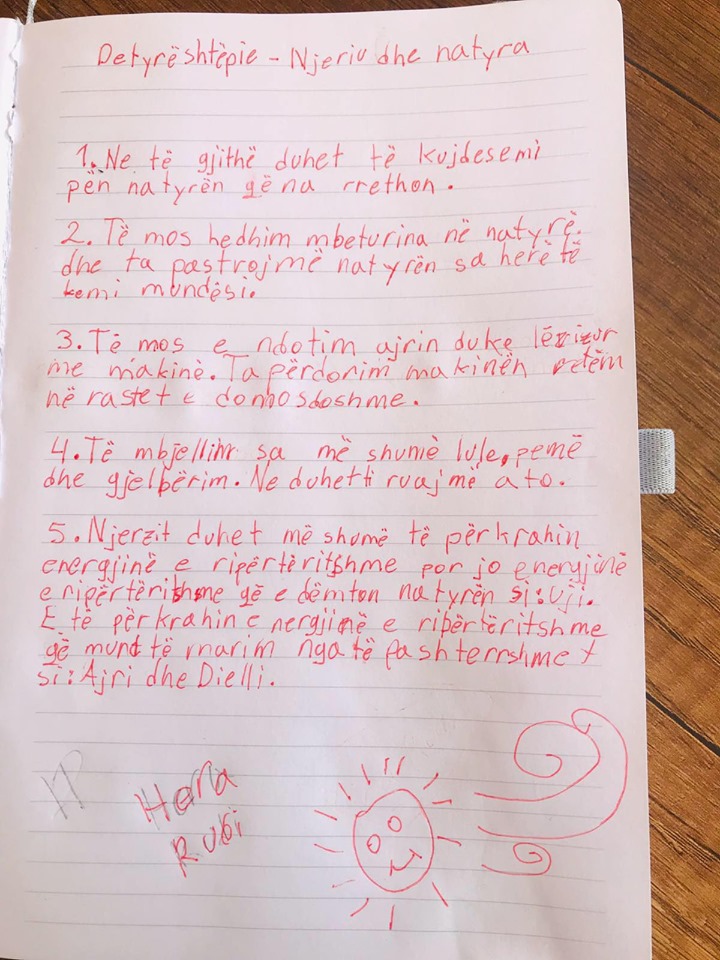 Detyrë shtëpie - Njeriu dhe natyra
1. Ne të gjithë duhet të kujdesemi
për natyrën që na rrethon.
2. Të mos hedhim mbeturina në natyrë.
dhe ta pastrojmë natyrën sa herë të
kemi mundësi.
3. Të mos e ndotim ajrin duke lëvizur
me makinë. Ta përdorim makinën vetëm
në rastet e domosdoshme.
4. Të mbjellim sa më shumë lule, pemë
dhe gjelbërim. Ne duhet ti ruajmë ato.
5. Njerzit duhet më shumë të përkrahin
energjinë e ripërtëritshme por jo energjinë
e ripërtëritshme që e dëmton natyrën si: uji.
E të përkrahin energjinë e ripërtëritshme
që mund të marim nga të pashterrshmet
si: Ajri dhe Dielli.
Hena
Rubi